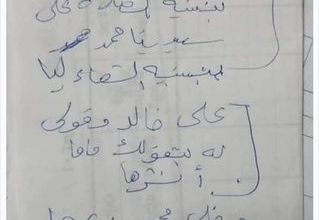 بنسبة الصلاة على
سيدنا محمد
بنسبة الشفاء ليا
على خالد وقولى
له بتقولك ماما
أنشرها